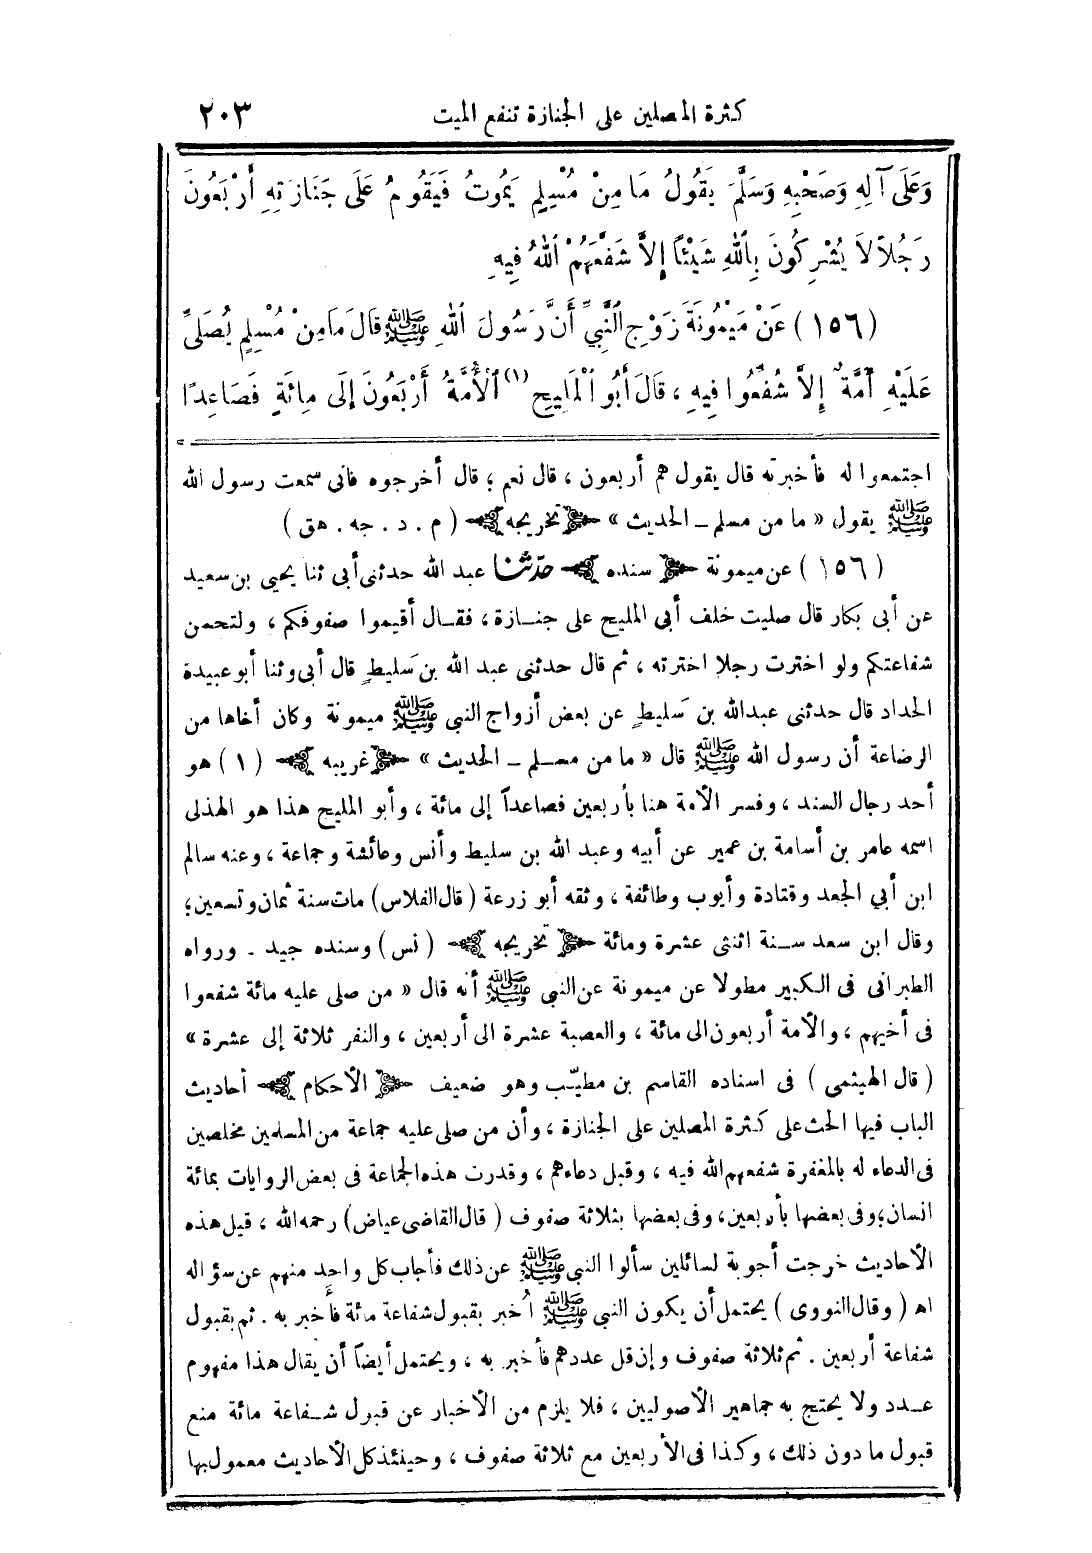 كثرة المصلين على الجنازة تنفع الميت ٢٠٣
وَعَلَى آلِهِ وَصَحْبِهِ وَسَلَّمَ يَقُولُ مَا مِنْ مُسْلِمٍ يَمُوتُ فَيَقُومُ عَلَى جَنَازَتِهِ أَرْبَعُونَ
رَجُلاً لاَ يُشْرِكُونَ بِاللهِ شَيْئاً إِلاَّ شَفَّعَهُمْ اللهُ فِيهِ
(١٥٦) عَنْ مَيْمُونَةَ زَوْجِ النَّبِيِّ أَنَّ رَسُولَ اللهِ ﷺ قَالَ مَا مِنْ مُسْلِمٍ يُصَلِّى
عَلَيْهِ أُمَّةٌ إِلاَّ شُفِّعُوا فِيهِ ، قَالَ أَبُو الْمَلِيحِ (١) الْأُمَّةُ أَرْبَعُونَ إِلَى مِائَةٍ فَصَاعِدًا
اجتمعوا له فأخبرته قال يقول هم أربعون ، قال نعم ؛ قال أخرجوه فانى سمعت رسول الله
ﷺ يقول « ما من مسلم ــ الحديث » تخريجه ( م . د . جه . هق )
( ١٥٦ ) عن ميمونة سنده حدّثنا عبد الله حدثنى أبى ثنا يحيى بن سعيد
عن أبى بكار قال صليت خلف أبى المليح على جنــازة ، فقــال أقيموا صفوفكم ، ولتحمن
شفاعتكم ولو اخترت رجلا اخترته ، ثم قال حدثنى عبد الله بن سَليطٍ قال أبى وثنا أبو عبيدة
الحداد قال حدثنى عبدالله بن سَليطٍ عن بعض أزواج النبى ﷺ ميمونة وكان أخاها من
الرضاعة أن رسول الله ﷺ قال « ما من مسلم ــ الحديث » غريبه ( ١ ) هو
أحد رجال السند ، وفسر الأمة هنا بأربعين فصاعداً إلى مائة ، وأبو المليح هذا هو الهذلى
اسمه عامر بن أسامة بن عمير عن أبيه وعبد الله بن سليط وأنس وعائشة وجماعة ، وعنه سالم
ابن أبي الجعد وقتادة وأيوب وطائفة ، وثقه أبو زرعة ( قال الفلاس ) مات سنة ثمان وتسعين ؛
وقال ابن سعد ســنة اثنثى عشرة ومائة تخريجه ( نس ) وسنده جيد . ورواه
الطبرانى فى الكبير مطولا عن ميمونة عن النبى ﷺ أنه قال « من صلى عليه مائة شفعوا
فى أخيهم ، والأمة أربعون الى مائة ، والعصبة عشرة الى أربعين ، والنفر ثلاثة إلى عشرة »
( قال الهيثمى ) فى اسناده القاسم بن مطيّب وهو ضعيف الأحكام أحاديث
الباب فيها الحث على كثرة المصلين على الجنازة ، وأن من صلى عليه جماعة من المسلمين مخلصين
فى الدعاء له بالمغفرة شفعهم الله فيه ، وقبل دعاءهم ، وقدرت هذه الجماعة فى بعض الروايات بمائة
انسان ؛ وفى بعضها بأربعين ، وفى بعضها بثلاثة صفوف ( قال القاضى عياض ) رحمه الله ، قيل هذه
الأحاديث خرجت أجوبة لسائلين سألوا النبى ﷺ عن ذلك فأجاب كل واحد منهم عن سؤاله
اه ( وقال النووى ) يحتمل أن يكون النبى ﷺ أُخبر بقبول شفاعة مائة فأخبر به . ثم بقبول
شفاعة أربعين . ثم ثلاثة صفوف وإن قل عددهم فأخبر به ، ويحتمل أيضاً أن يقال هذا مفهوم
عــدد ولا يحتج به جماهير الأصوليين ، فلا يلزم من الأخبار عن قبول شــفاعة مائة منع
قبول ما دون ذلك ، وكذا فى الأربعين مع ثلاثة صفوف ، وحينئذ كل الأحاديث معمول بها